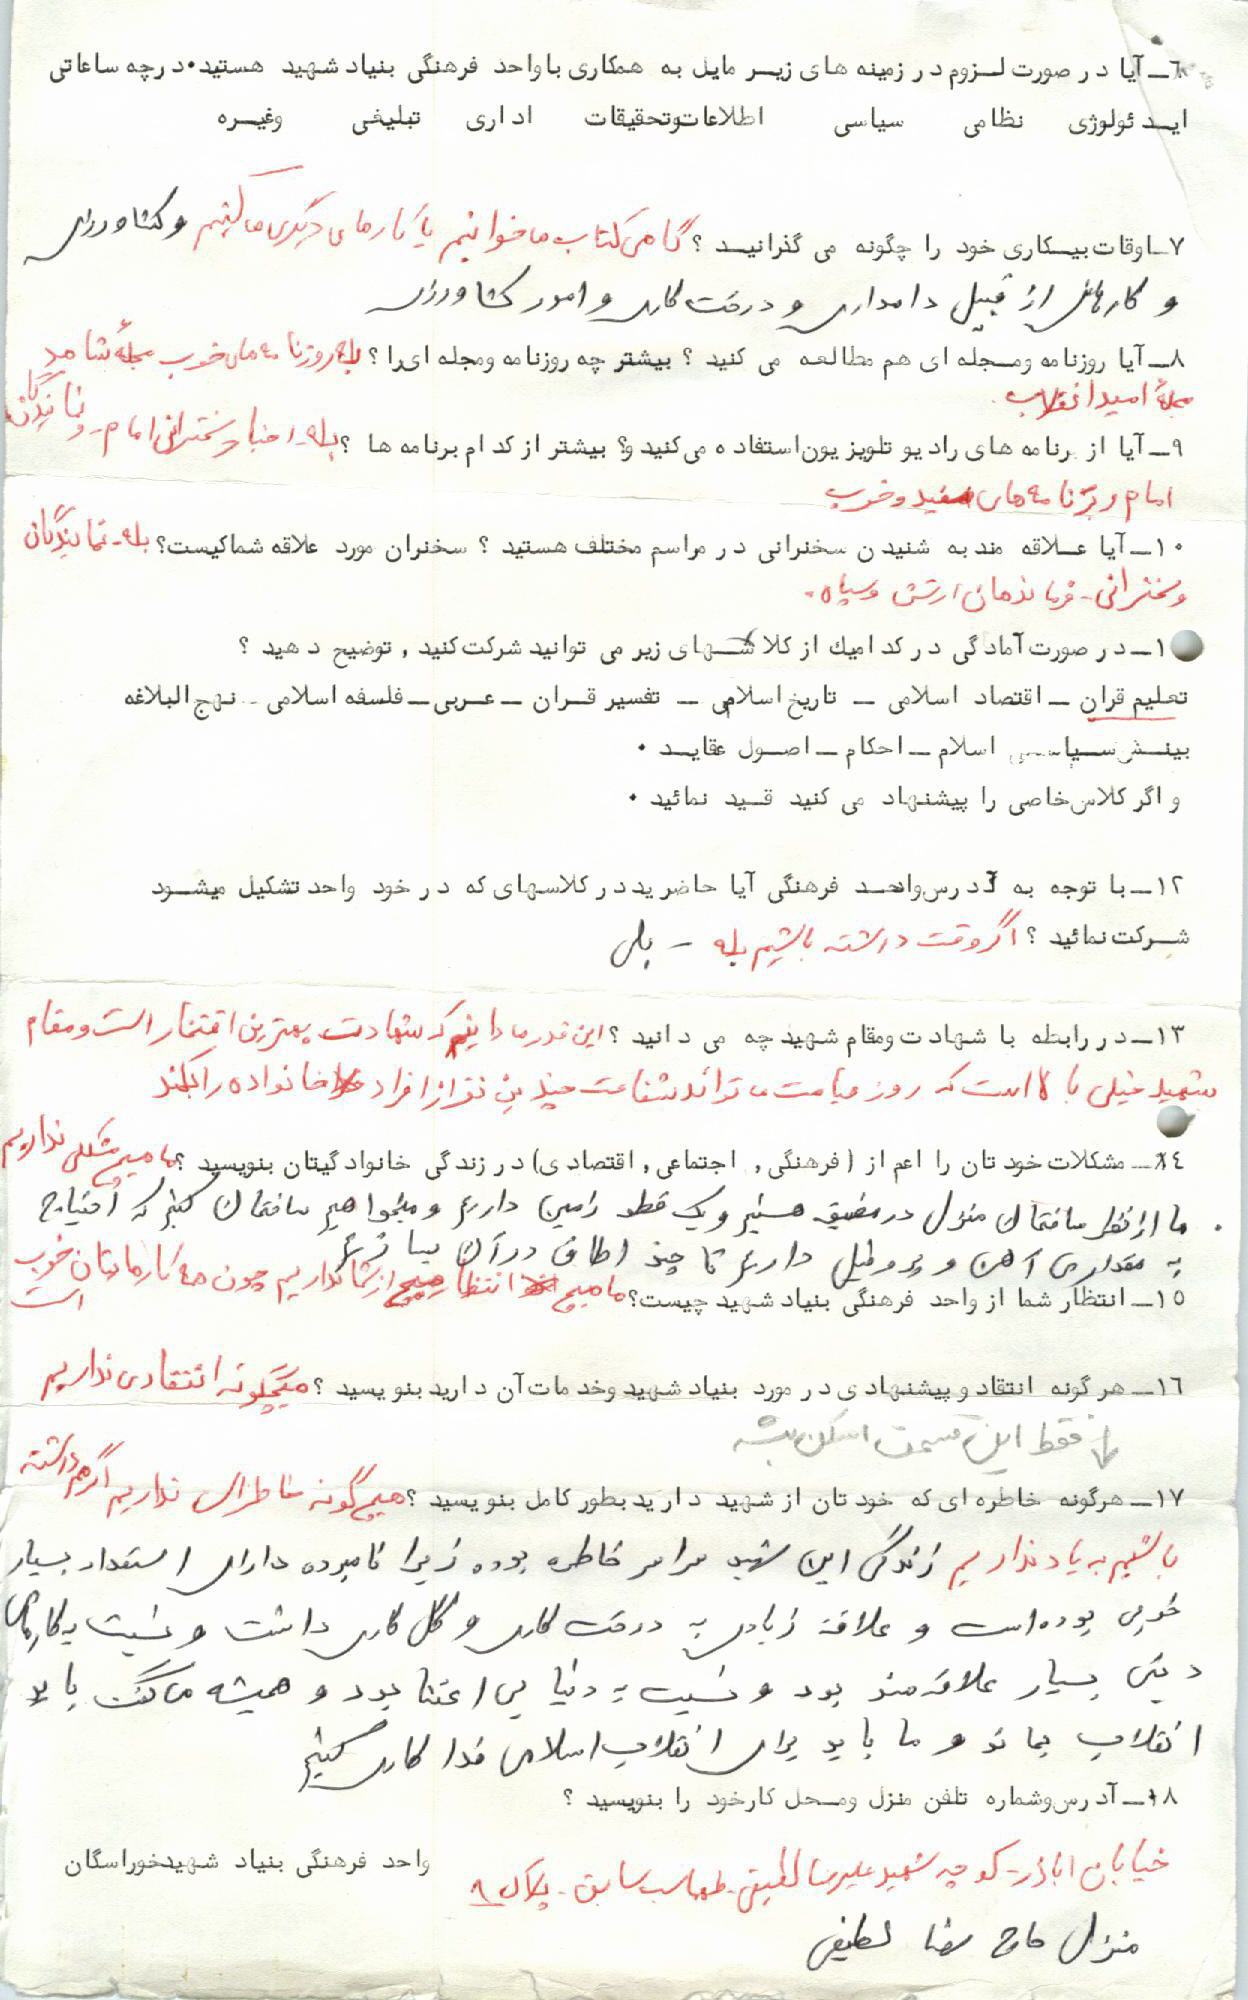 ٦ــ آیا در صورت لزوم در زمینه های زیر مایل به همکاری با واحد فرهنگی بنیاد شهید هستید۰ در چه ساعاتی
ایدئولوژی نظامی سیاسی اطلاعات وتحقیقات اداری تبلیغی وغیره
۷ــ اوقات بیکاری خود را چگونه می گذرانید ؟ گاهی کتاب ما خوانیم یا کارهای دیگری ما کنیم و کشاورزی
و کارهائی از قبیل دامداری و درخت کاری و امور کشاورزی
۸ــ آیا روزنامه ومجله ای هم مطالعه می کنید ؟ بیشتر چه روزنامه ومجله ای را ؟ بله روزنامه های خوب مجلهٔ شاهد
مجلهٔ امید انقلاب
۹ــ آیا از برنامه های رادیو تلویزیون استفاده می کنید و؟ بیشتر از کدام برنامه ها ؟ بله ـ اخبار و سخنرانی امام ـ و نمایندگان
امام و برنامه های مفید و خوب
۱۰ــ آیا علاقه مند به شنیدن سخنرانی در مراسم مختلف هستید ؟ سخنران مورد علاقه شما کیست؟ بله ـ نمایندگان
و سخنرانی ـ فرماندهان ارتش و سپاه ـ
۱ــ در صورت آمادگی در کدامیك از کلاسهای زیر می توانید شرکت کنید , توضیح دهید ؟
تعلیم قران ــ اقتصاد اسلامی ــ تاریخ اسلامی ــ تفسیر قران ــ عربی ــ فلسفه اسلامی ـ نهج البلاغه
بینش سیاسی اسلام ــ احکام ــ اصول عقاید ۰
و اگر کلاس خاصی را پیشنهاد می کنید قید نمائید ۰
۱۲ــ با توجه به آدرس واحد فرهنگی آیا حاضرید در کلاسهای که در خود واحد تشکیل میشود
شرکت نمائید ؟ اگر وقت داشته باشیم بله ـ بلی
۱۳ــ در رابطه با شهادت ومقام شهید چه می دانید ؟ این قدر ما دانیم که شهادت بهترین افتخار است و مقام
شهید خیلی بالا است که روز قیامت ما تواند شفاعت چندین نفر از افراد خانواده را بکند
۱٤ــ مشکلات خودتان را اعم از (فرهنگی , اجتماعی , اقتصادی) در زندگی خانوادگیتان بنویسید ؟ ما هیچ مشکلی نداریم
ما از نظر ساختمان منزل در مضیقه هستیم و یک قطعه زمین داریم و میخواهیم ساختمان کنیم که احتیاج
به مقداری آهن و پروفیل داریم تا چند اطاق در آن بسازیم
۱۵ــ انتظار شما از واحد فرهنگی بنیاد شهید چیست؟ ما هیچ انتظار از شما نداریم چون همه کارهایتان خوب
است
۱٦ــ هرگونه انتقاد و پیشنهادی در مورد بنیاد شهید وخدمات آن دارید بنویسید ؟ هیچگونه انتقادی نداریم
فقط این قسمت اسکن بشه
۱۷ــ هرگونه خاطره ای که خودتان از شهید دارید بطور کامل بنویسید ؟ هیچ گونه خاطرای نداریم اگر هم داشته
باشیم به یاد نداریم زندگی این شهید سراسر خاطره بوده زیرا نامبرده دارای استعداد بسیار
خوبی بوده است و علاقه زیادی به درخت کاری و گل کاری داشت و نسبت به کارهای
دینی بسیار علاقه مند بود و نسبت به دنیا بی اعتنا بود و همیشه ما گفت باید
انقلاب بماند و ما باید برای انقلاب اسلامی فدا کاری کنیم
۱۸ــ آدرس وشماره تلفن منزل ومحل کار خود را بنویسید ؟
واحد فرهنگی بنیاد شهید خوراسگان
خیابان اباذر ـ کوچه شهید علیرضا لطیفی ـ طهماسب سابق ـ پلاک ۹
منزل حاج رضا لطیفی